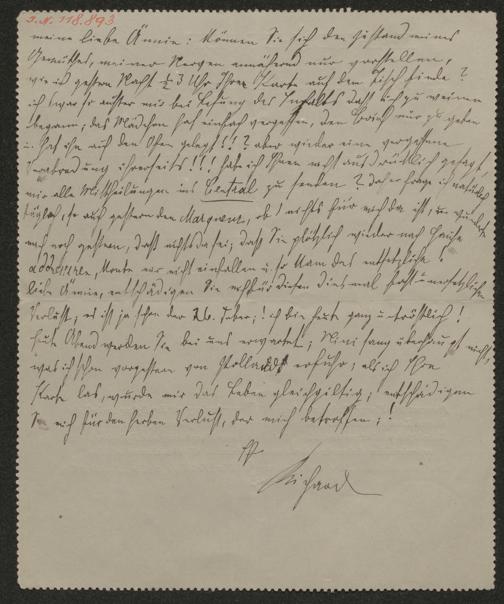 I.N. 118.893
meine liebe Ännie: können Sie sich den Zustand meines
Gemüthes, meiner Nerven annähernd nur vorstellen,
wie ich gestern Nacht ½ 3 Uhr Ihre Karte auf dem Tisch finde?
ich war so ausser mir bei Lesung des Inhalts daß ich zu weinen
begann; das Mädchen hat einfach vergessen, den Brief mir zu geben
u. hat ihn auf den Ofen gelegt!!? aber wieder eine vergessene
ihrerseits!!! habe ich Ihnen nicht ausdrücklich gesagt,
mir alle Mittheilungen ins Central zu senden? daher frage ich natürlich
täglich, so auch gestern den Marqueur, ob nichts für mich da ist, u. wunderte
mich noch gestern, daß nichts da sei; daß Sie plötzlich wieder nach Hause
, konnte mir nicht einfallen u. so kam das entsetzliche!
liebe Ännie, entschädigen Sie mich für diesen diesmal fast unersetzlichen
Verlust; es ist ja schon der 26. ! ich bin heute ganz untröstlich!
heute Abend werden Sie bei uns erwartet; Mini sang überhaupt nicht,
was ich schon vorgestern von erfuhr; als ich Ihre
Karte las, wurde mir das Leben gleichgiltig; entschädigen
Sie mich für den herben Verlust, der mich betroffen;!
Richard